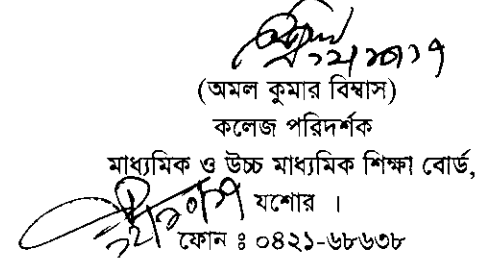 (অমল কুমার বিশ্বাস)
কলেজ পরিদর্শক
মাধ্যমিক ও উচ্চ মাধ্যমিক শিক্ষা বোর্ড,
যশোর ।
ফোন ঃ ০৪২১-৬৮৬৩৮